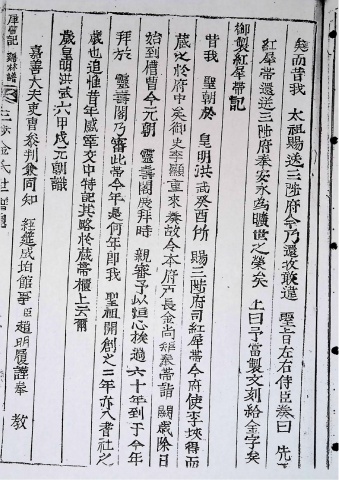 而昔我 太祖賜送三陟府今乃還收敢違 聖旨左右侍臣奏曰 先
紅犀帶還送三陟府奉安永為曠世之榮矣 上曰予當製文刻給金字矣
御製紅犀帶記
昔我 聖朝於 皇明洪武癸酉所 賜三陟府司紅犀帶今府使李埉得而
藏之於府中矣御史李顯重來奏故今本府戶長金尚奉帶詣 闕歲除日
始到備曹今元朝 靈壽閣展拜時 親審予以心挨過六十年到于今年
拜於 靈壽閣乃審此帶今年是何年即我 聖祖開創之三年亦入耆社之
歲也追惟昔年感交中特記其略於藏帶櫃上云爾
歲皇明洪武六甲戌元朝識
嘉善大夫吏曹參判兼同知 經筵成均館事臣趙明履謹奉 教
犀帶記